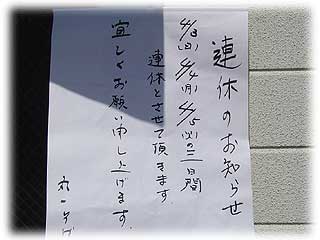 連休のお知らせ
4/3(日) 4/4(月) 4/5(火)の三日間
連休とさせて頂きます。
宜しくお願い申し上げます。